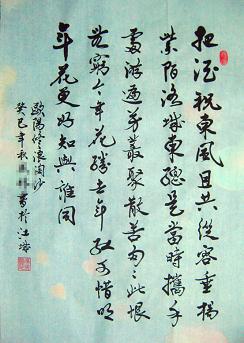 把酒祝東風且共從容垂楊
紫陌洛城東總是當時攜手
處游遍芳叢聚散苦匆々此恨
無窮今年花勝去年紅可惜明
年花更好知與誰同
歐陽修浪淘沙
癸巳年秋書於江城